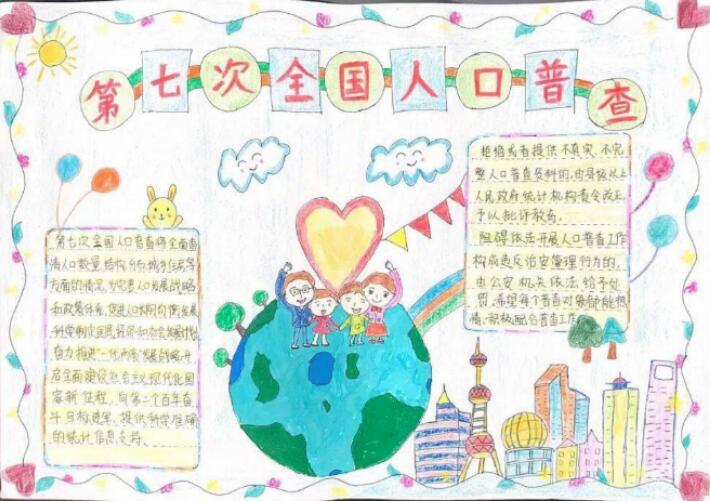 第七次全国人口普查
第七次全国人口普查将全面查
清人口数量、结构、分布、城乡住房等
方面的情况,为完善人口发展战略
和政策体系,促进人口长期均衡发展
科学制定国民经济和社会发展计划
奋力推进"一化两新"发展战略,开
启全面建设社会主义现代化国
家新征程,向第二个百年奋
斗目标进军,提供科学准确
的统计信息支持。
拒绝或者提供不真实、不完
整人口普查资料的,由县级以上
人民政府统计机构责令改正,
予以批评教育。
阻碍依法开展人口普查工作
构成违反治安管理行为的,
由公安机关依法给予处
罚,希望每个普查对象都能热
情、积极配合普查工作